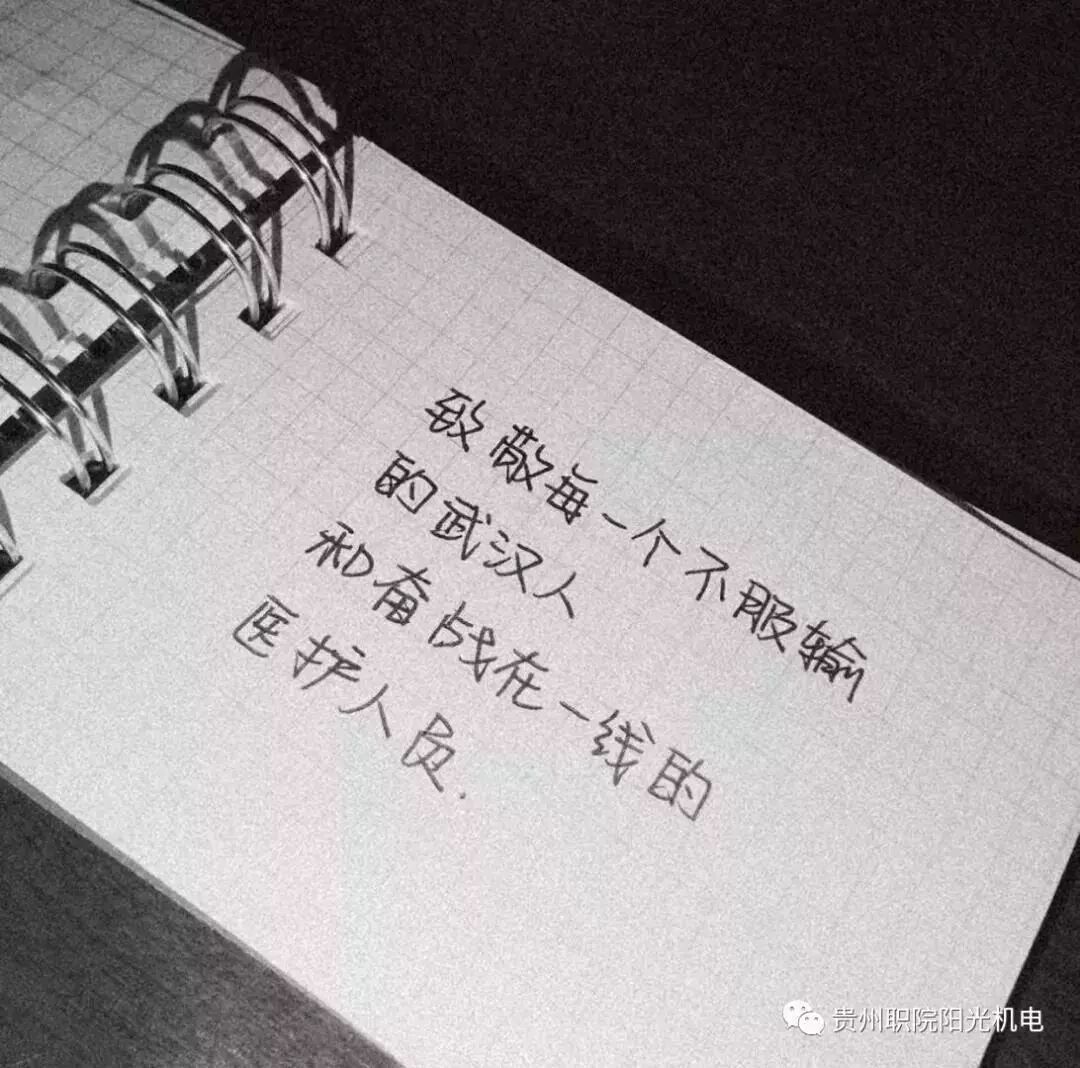 致敬每一个不服输
的武汉人
和奋战在一线的
医护人员.
贵州职院阳光机电